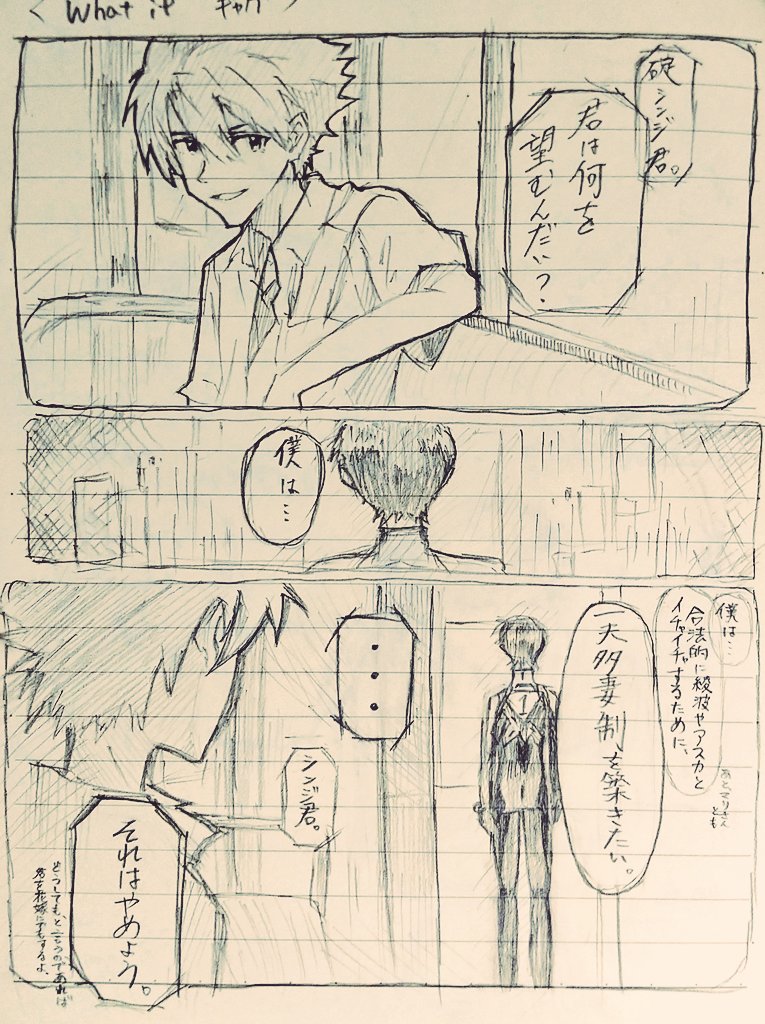 < What if ギャグ >
碇シンジ君。
君は何を
望むんだい？
僕は…
僕は…
合法的に綾波やアスカと
イチャイチャするために、
あとマリさん
とも
一夫多妻制を築きたい。
・・・
シンジ君。
それはやめよう。
どうしても、と言うのであれば
君を花嫁にでもするよ、